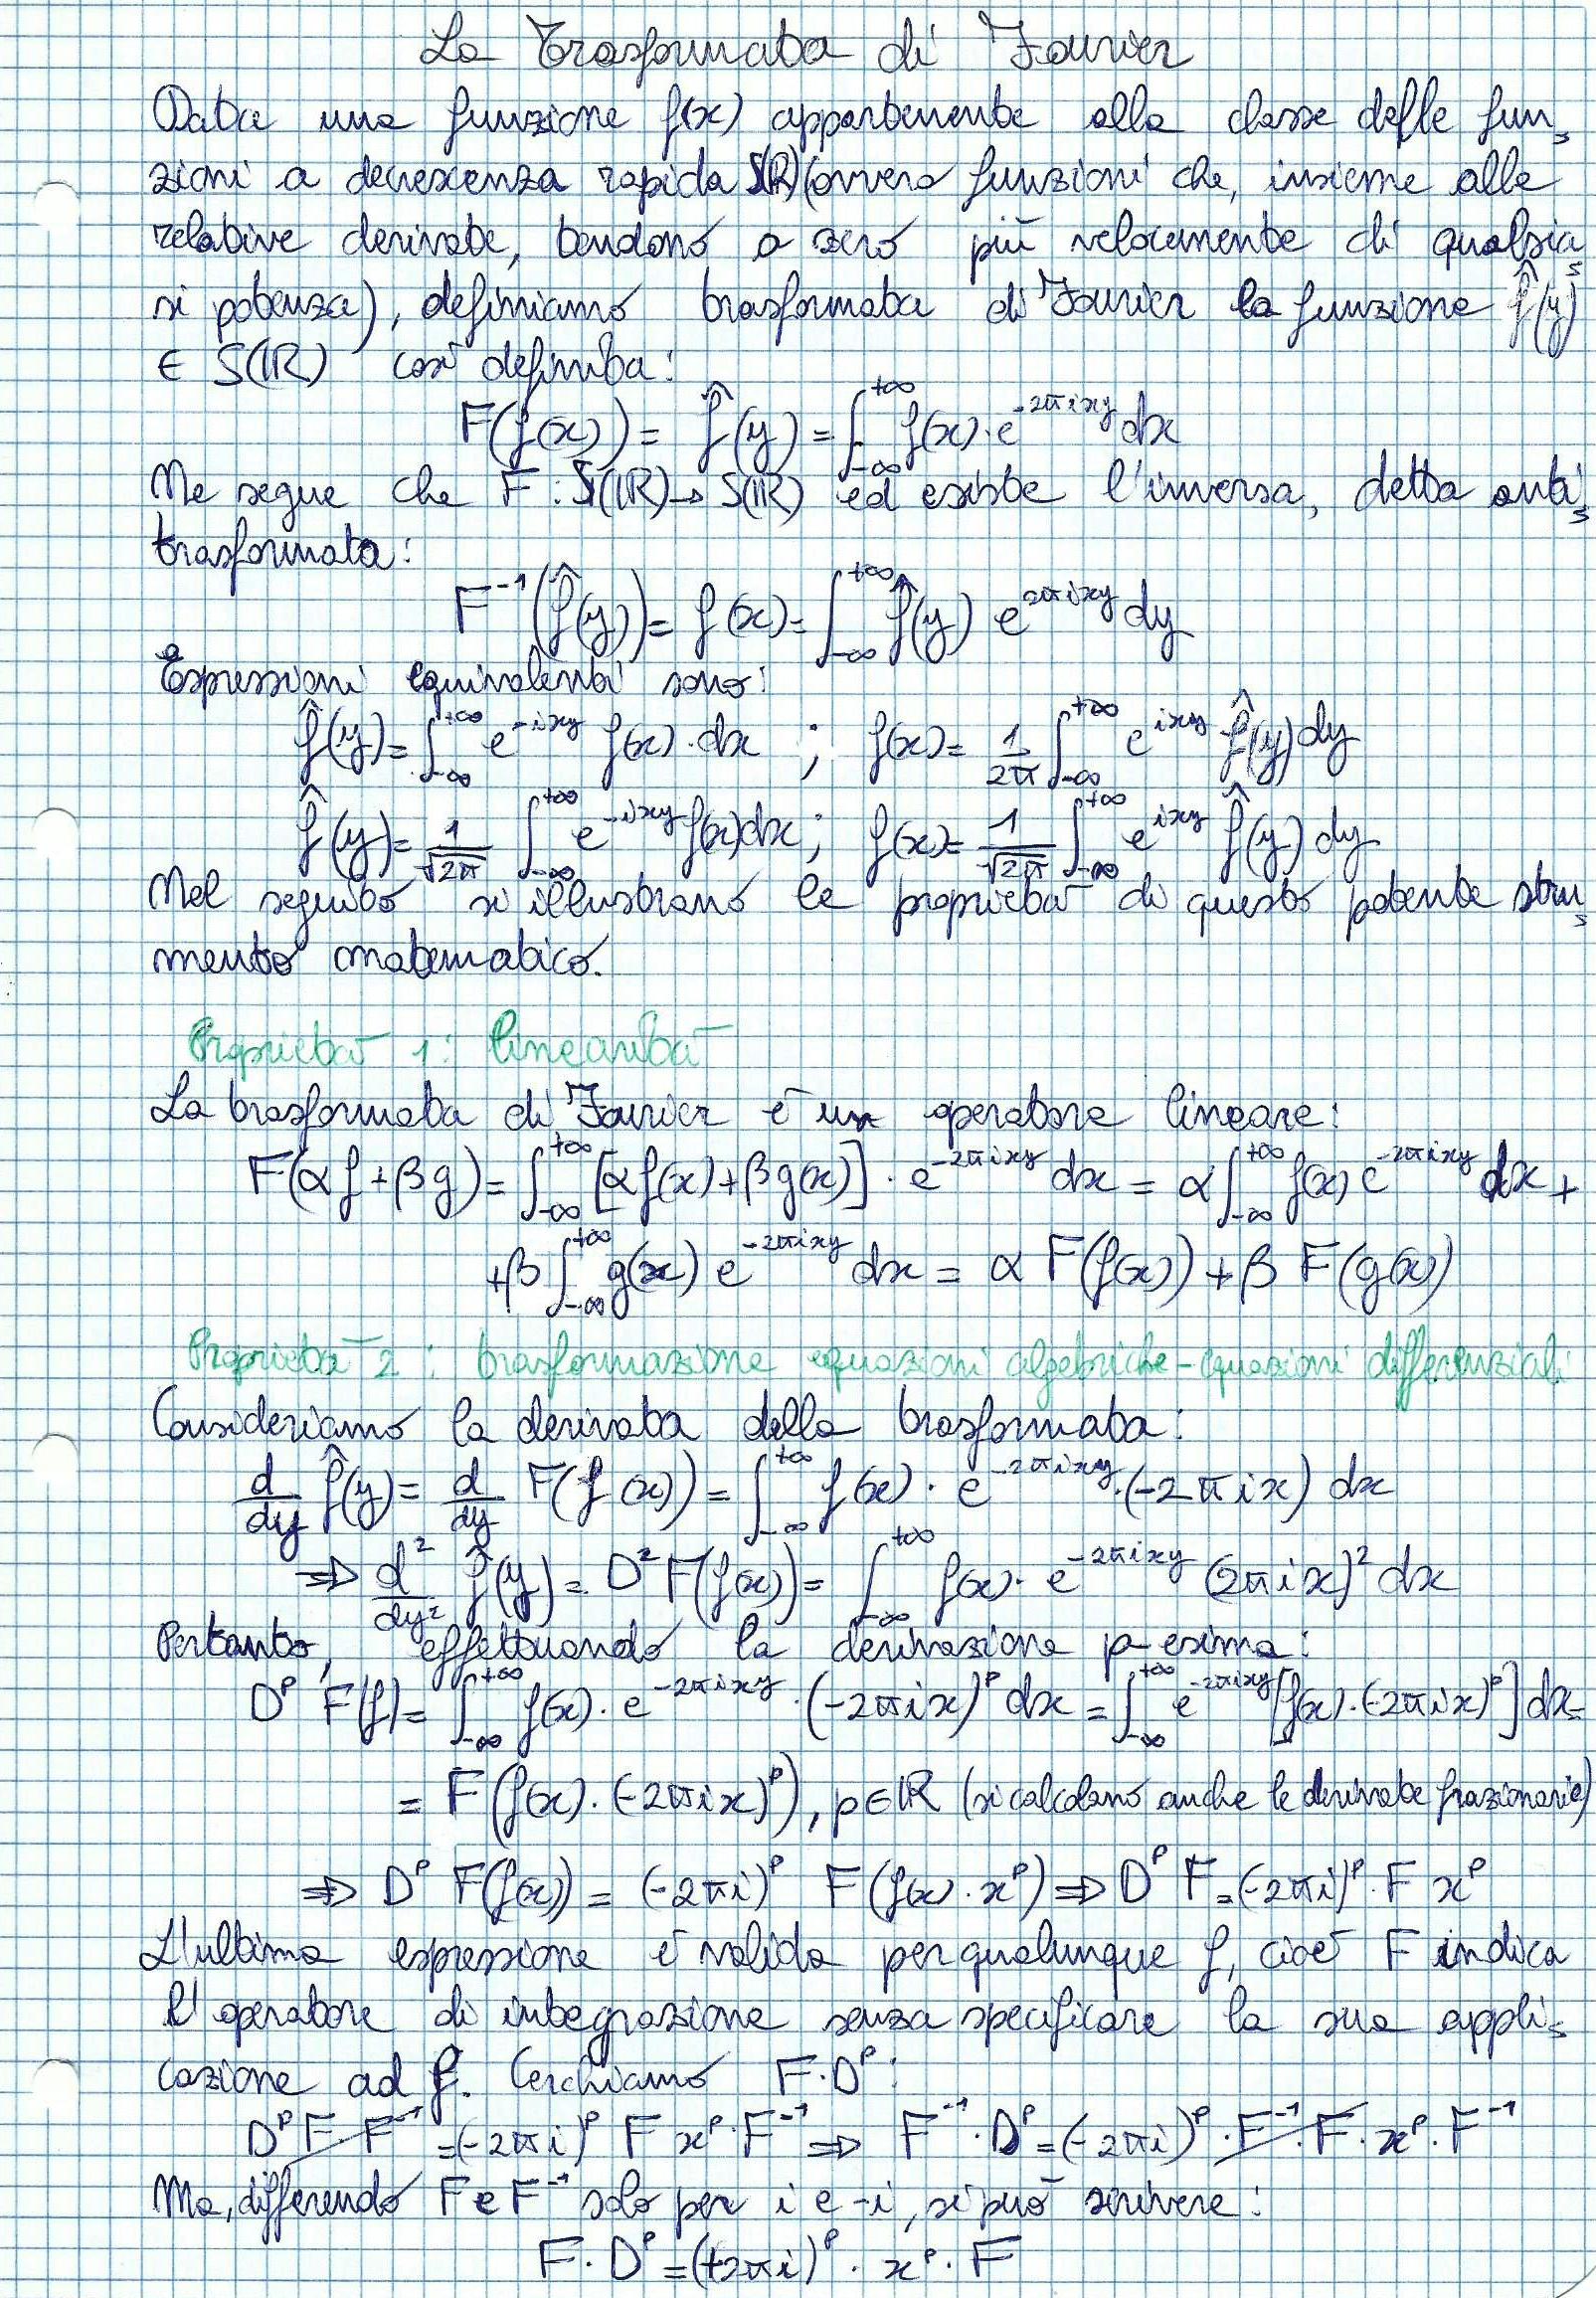 La Trasformata di Fourier
Data una funzione f(x) appartenente alla classe delle fun=
zioni a decrescenza rapida S(ℝ) (ovvero funzioni che, insieme alle
relative derivate, tendono a zero più velocemente di qualsia=
si potenza), definiamo trasformata di Fourier la funzione f̂(y)
∈ S(ℝ) così definita:
F(f(x)) = f̂(y) = ∫_{-∞}^{+∞} f(x)·e^{-2πixy} dx
Ne segue che F: S(ℝ) → S(ℝ) ed esiste l'inversa, detta anti=
trasformata:
F^{-1}(f̂(y)) = f(x) = ∫_{-∞}^{+∞} f̂(y) e^{2πixy} dy
Espressioni equivalenti sono:
f̂(y) = ∫_{-∞}^{+∞} e^{-ixy} f(x)·dx ; f(x) = 1/2π ∫_{-∞}^{+∞} e^{ixy} f̂(y) dy
f̂(y) = 1/√2π ∫_{-∞}^{+∞} e^{-ixy} f(x) dx ; f(x) = 1/√2π ∫_{-∞}^{+∞} e^{ixy} f̂(y) dy
Nel seguito si illustrano le proprietà di questo potente stru=
mento matematico.
Proprietà 1: linearità
La trasformata di Fourier è un operatore lineare:
F(αf+βg) = ∫_{-∞}^{+∞} [αf(x)+βg(x)]·e^{-2πixy} dx = α∫_{-∞}^{+∞} f(x) e^{-2πixy} dx +
+β∫_{-∞}^{+∞} g(x) e^{-2πixy} dx = α F(f(x)) + β F(g(x))
Proprietà 2: trasformazione equazioni algebriche-equazioni differenziali
Consideriamo la derivata della trasformata:
d/dy f̂(y) = d/dy F(f(x)) = ∫_{-∞}^{+∞} f(x)·e^{-2πixy}·(-2πix) dx
⇒ d²/dy² f̂(y) = D² F(f(x)) = ∫_{-∞}^{+∞} f(x)·e^{-2πixy} (2πix)² dx
Pertanto, effettuando la derivazione p-esima:
D^p F(f) = ∫_{-∞}^{+∞} f(x)·e^{-2πixy}·(-2πix)^p dx = ∫_{-∞}^{+∞} e^{-2πixy} [f(x)·(-2πix)^p] dx =
= F(f(x)·(-2πix)^p), p∈ℝ (si calcolano anche le derivate frazionarie)
⇒ D^p F(f(x)) = (-2πi)^p F(f(x)·x^p) ⇒ D^p F = (-2πi)^p·F x^p
L'ultima espressione è valida per qualunque f, cioè F indica
l'operatore di integrazione senza specificare la sua appli=
cazione ad f. Cerchiamo F·D^p:
D^p F F^{-1} = (-2πi)^p F x^p·F^{-1} ⇒ F^{-1}·D^p = (-2πi)^p·F^{-1}·F·x^p·F^{-1}
Ma, differendo F e F^{-1} solo per i e -i, si può scrivere:
F·D^p = (+2πi)^p·x^p·F